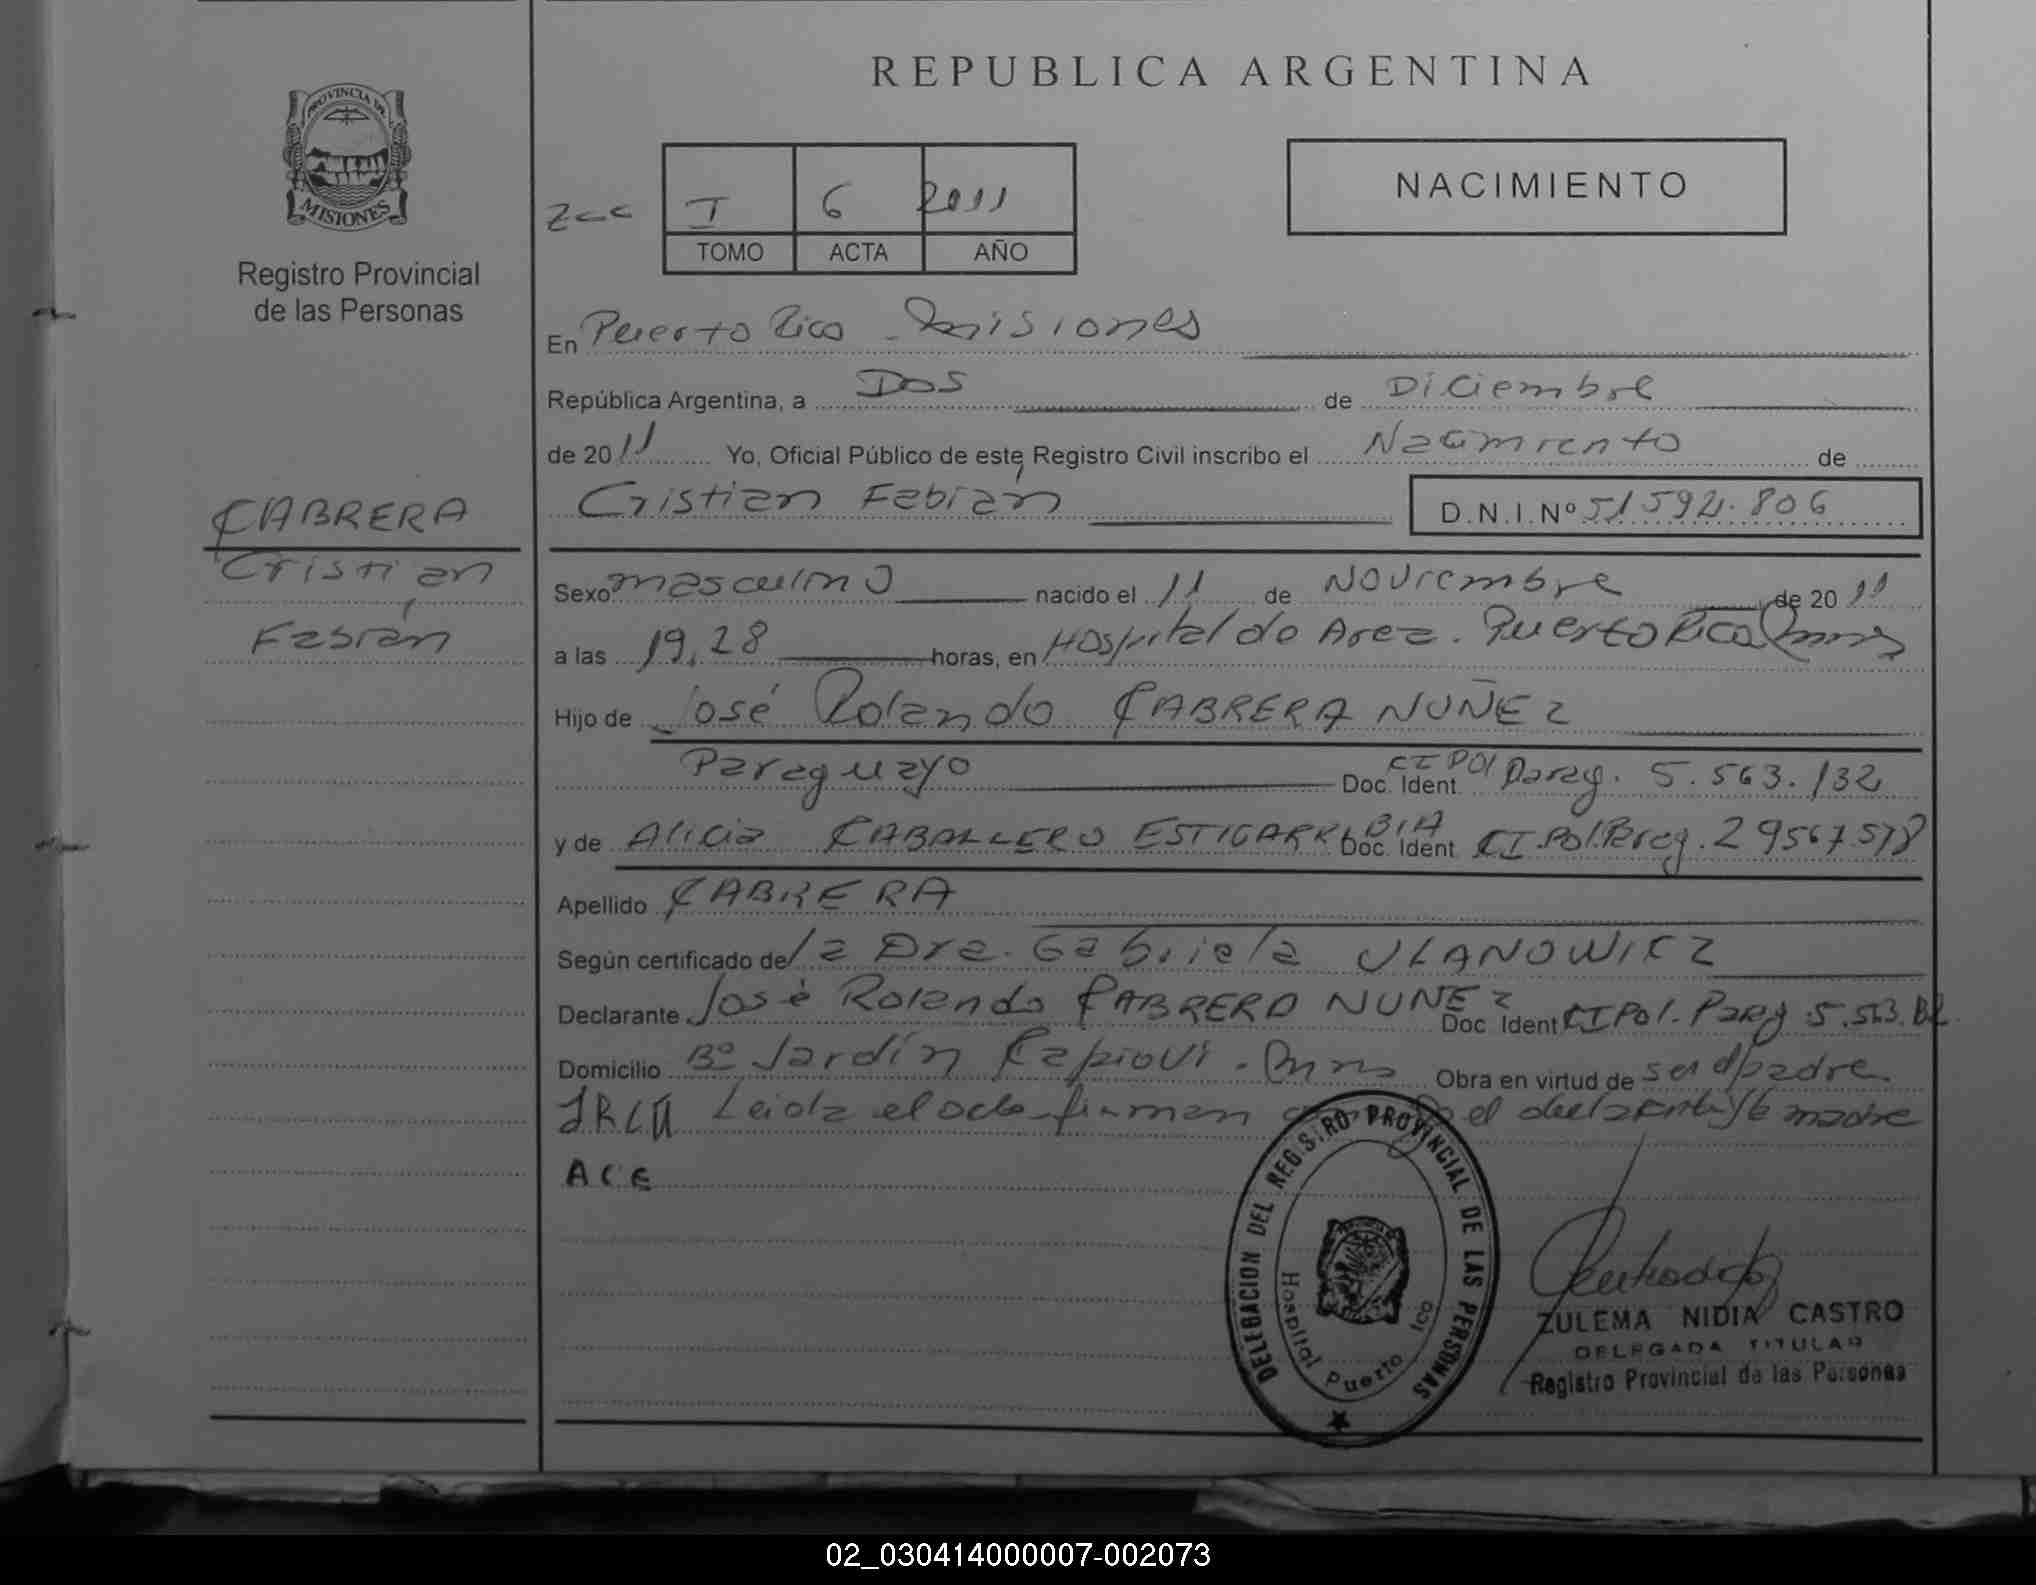 REPUBLICA ARGENTINA
PROVINCIA DE
MISIONES
Registro Provincial
de las Personas
I 6 2011
TOMO ACTA AÑO
NACIMIENTO
En Puerto Rico - Misiones
República Argentina, a Dos de Diciembre
de 2011 Yo, Oficial Público de este Registro Civil inscribo el Nacimiento de
Cristian Fabián D.N.I.Nº 51.592.806
CABRERA
Cristian
Fabián
Sexo masculino nacido el 11 de Noviembre de 2011
a las 19,28 horas, en Hospital de Area. Puerto Rico Mnes
Hijo de José Rolando CABRERA NUÑEZ
Paraguayo Doc. Ident. CI Pol Parag. 5.563.132
y de Alicia CABALLERO ESTIGARRIBIA Doc. Ident. CI.Pol.Parag. 29567578
Apellido CABRERA
Según certificado de la Dra. Gabriela ULANOWICZ
Declarante José Rolando CABRERA NUÑEZ Doc. Ident CI Pol. Parag 5.563.132
Domicilio Bº Jardín Capiovi - Mnes Obra en virtud de ser el padre
JRCN Leida el acta firman el declarante y la madre
ACE
DELEGACION DEL REGISTRO PROVINCIAL DE LAS PERSONAS
Hospital Puerto ico
ZULEMA NIDIA CASTRO
DELEGADA TITULAR
Registro Provincial de las Personas
02_030414000007-002073